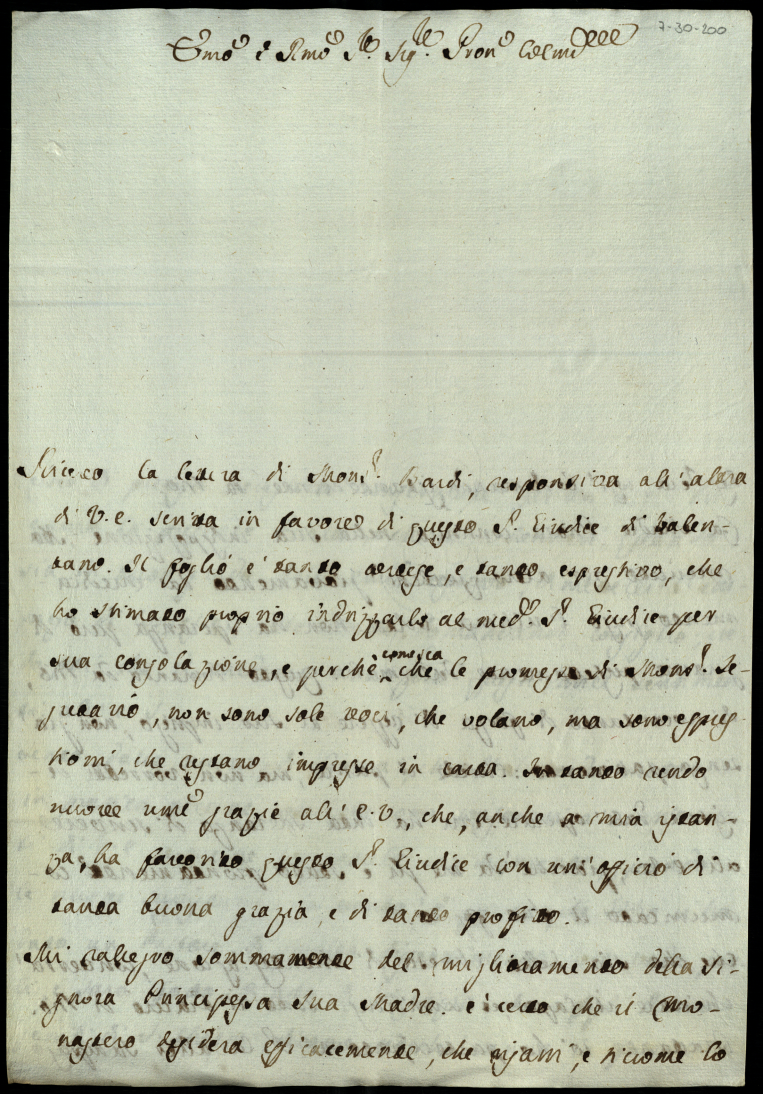 7-30-200
Em̃o e Rm̃o Sig.re Sig.re Pron̄ Colmo
Ricevo la lettera di Mons.r Bardi, responsiva all'altra
di V.E. scritta in favore di questo S.r Giudice di Valen-
tano. Il foglio è tanto cortese, e tanto espressivo, che
ho stimato proprio indrizzarlo al med.o S.r Giudice per
sua consolazione, e perchè conosca che le promesse di Mons.r Se-
gretario, non sono sole voci, che volano, ma sono espres-
sioni, che restano impresse in carta. In tanto rendo
nuove um.e grazie all'E.V., che, anche a mia istan-
za, ha favorito questo S.r Giudice con un'officio di
tanta buona grazia, e di tanto profitto.
Mi rallegro sommamente del miglioramento della Si-
gnora Principessa sua Madre. è certo che il Mo-
nastero desidera efficacemente, che risani, e siccome lo